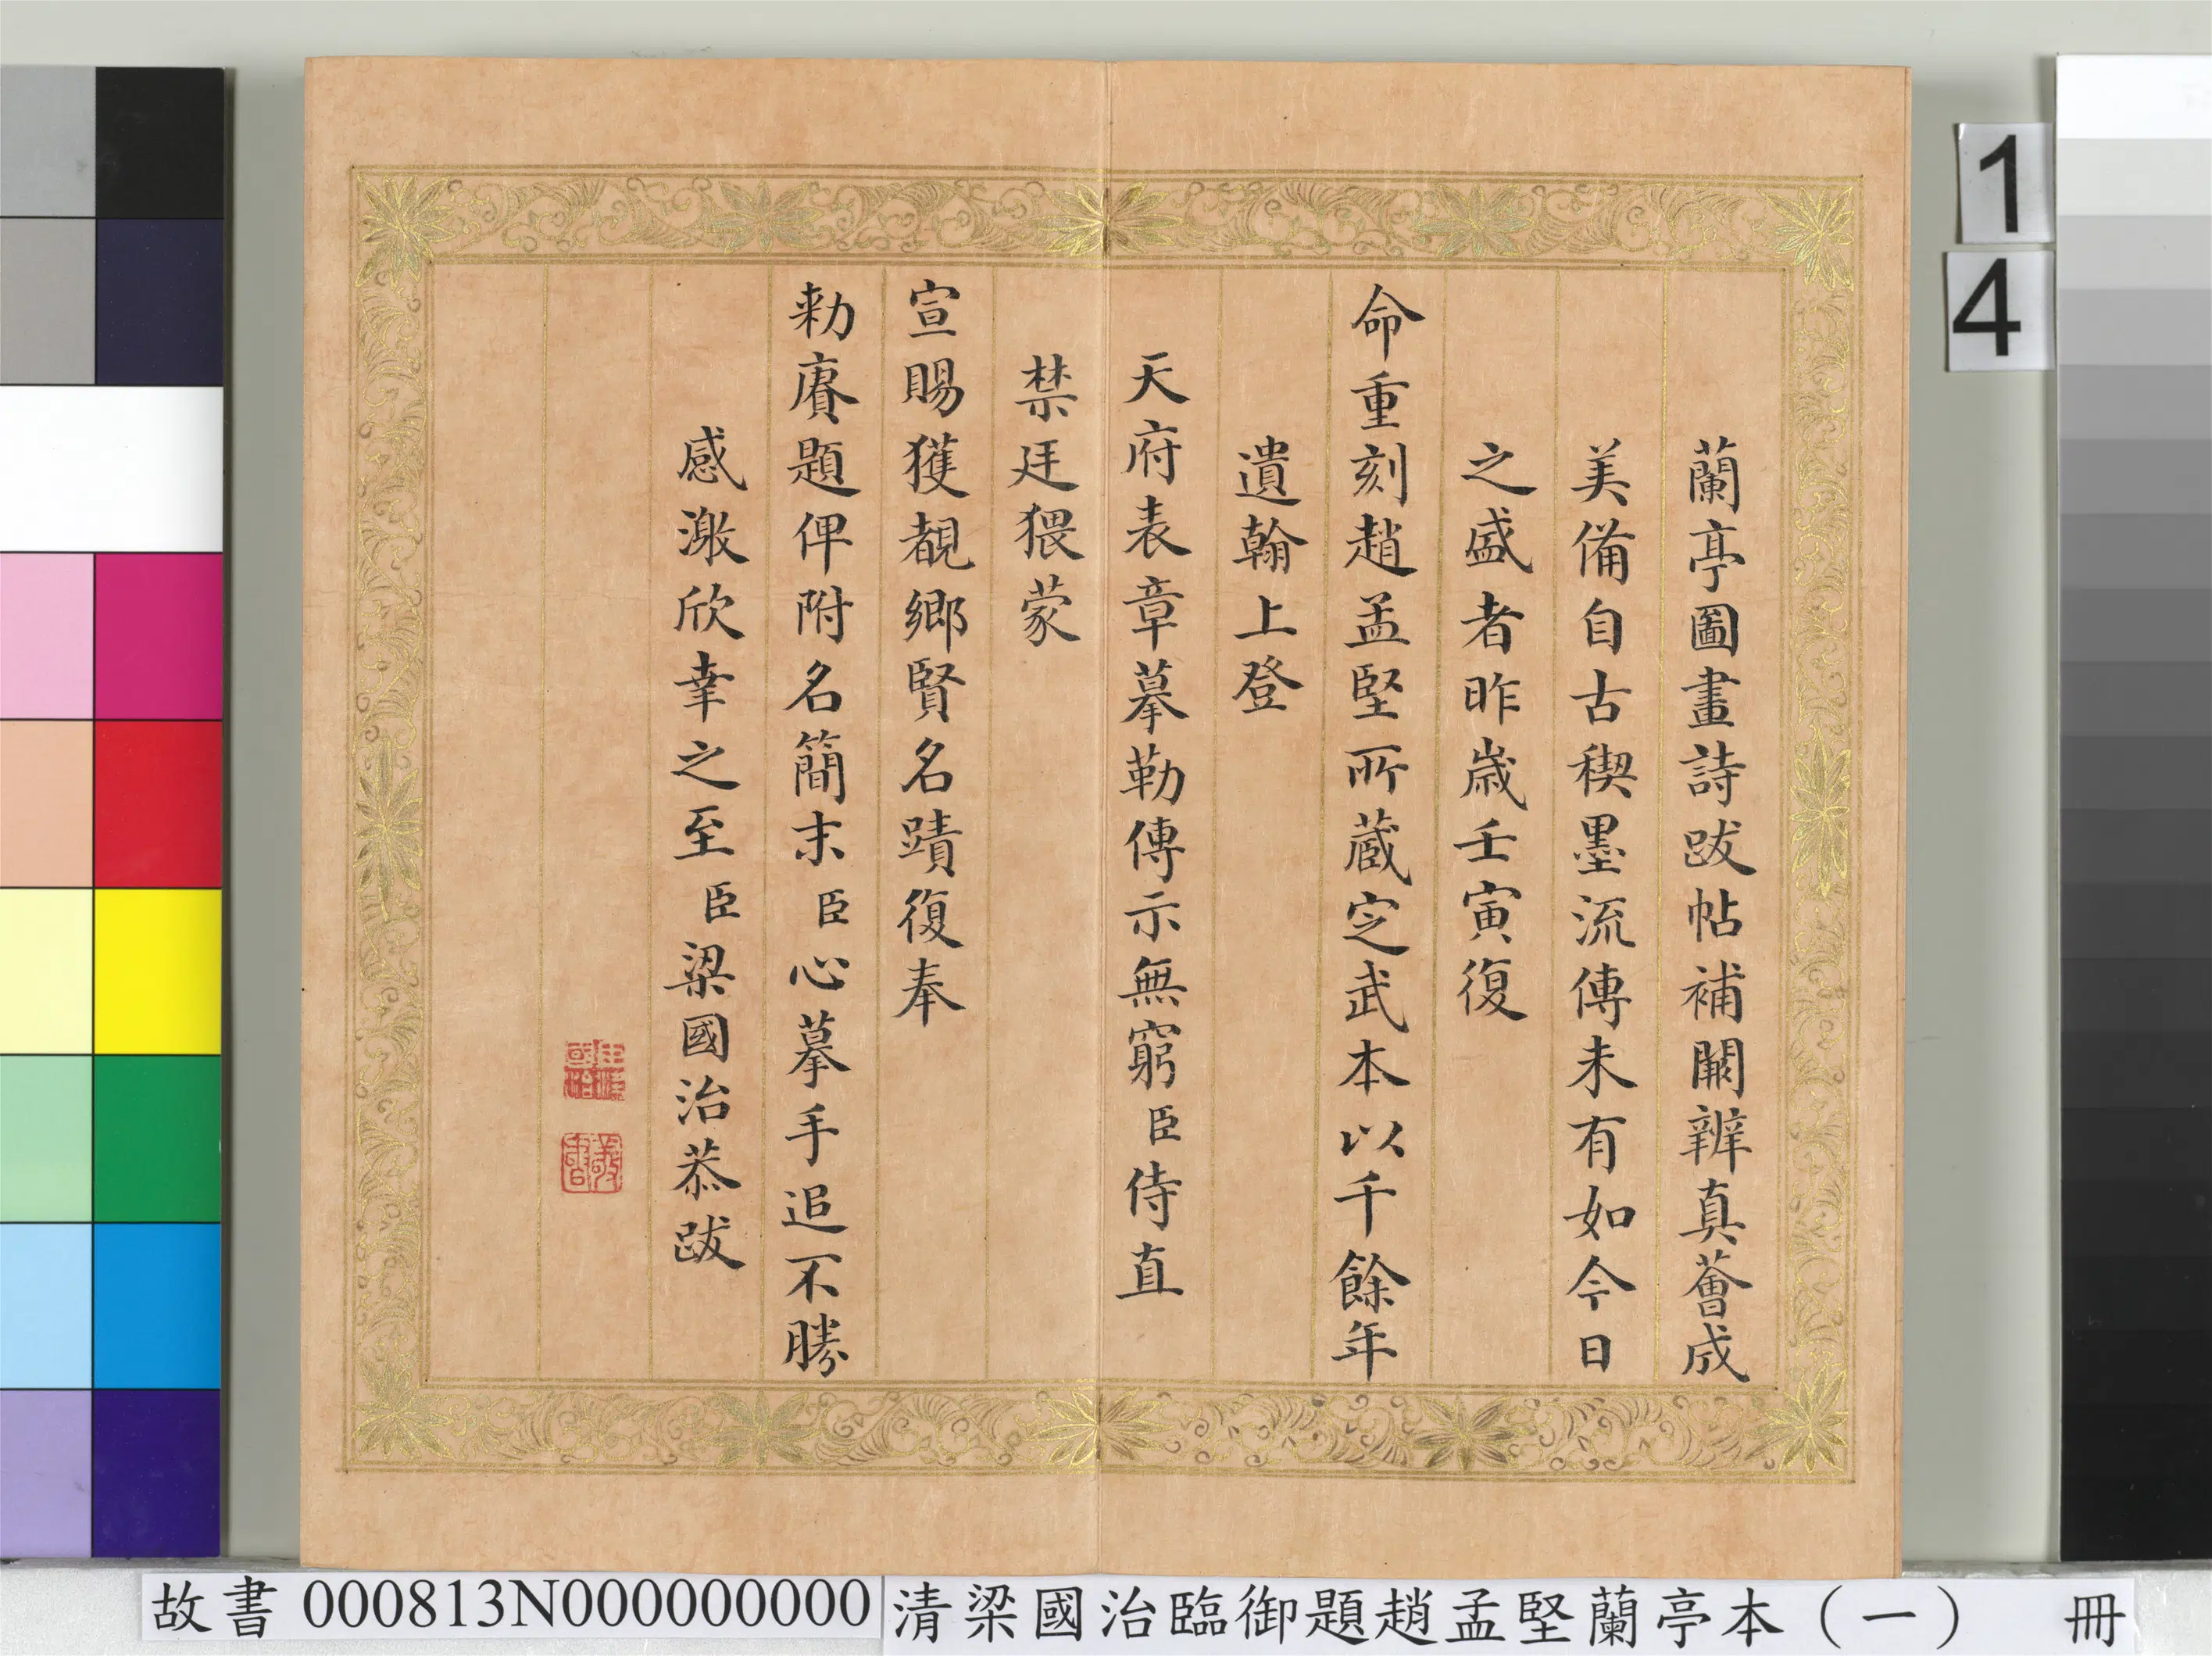 蘭亭圖畫詩跋帖補闕辨真薈成
美備自古稧墨流傳未有如今日
之盛者昨歲壬寅復
命重刻趙孟堅所藏定武本以千餘年
遺翰上登
天府表章摹勒傳示無窮臣侍直
禁廷猥蒙
宣賜獲覩鄉賢名蹟復奉
勑賡題俾附名簡末臣心摹手追不勝
感激欣幸之至臣梁國治恭跋
1
4
故書 000813N000000000
清梁國治臨御題趙孟堅蘭亭本（一） 冊